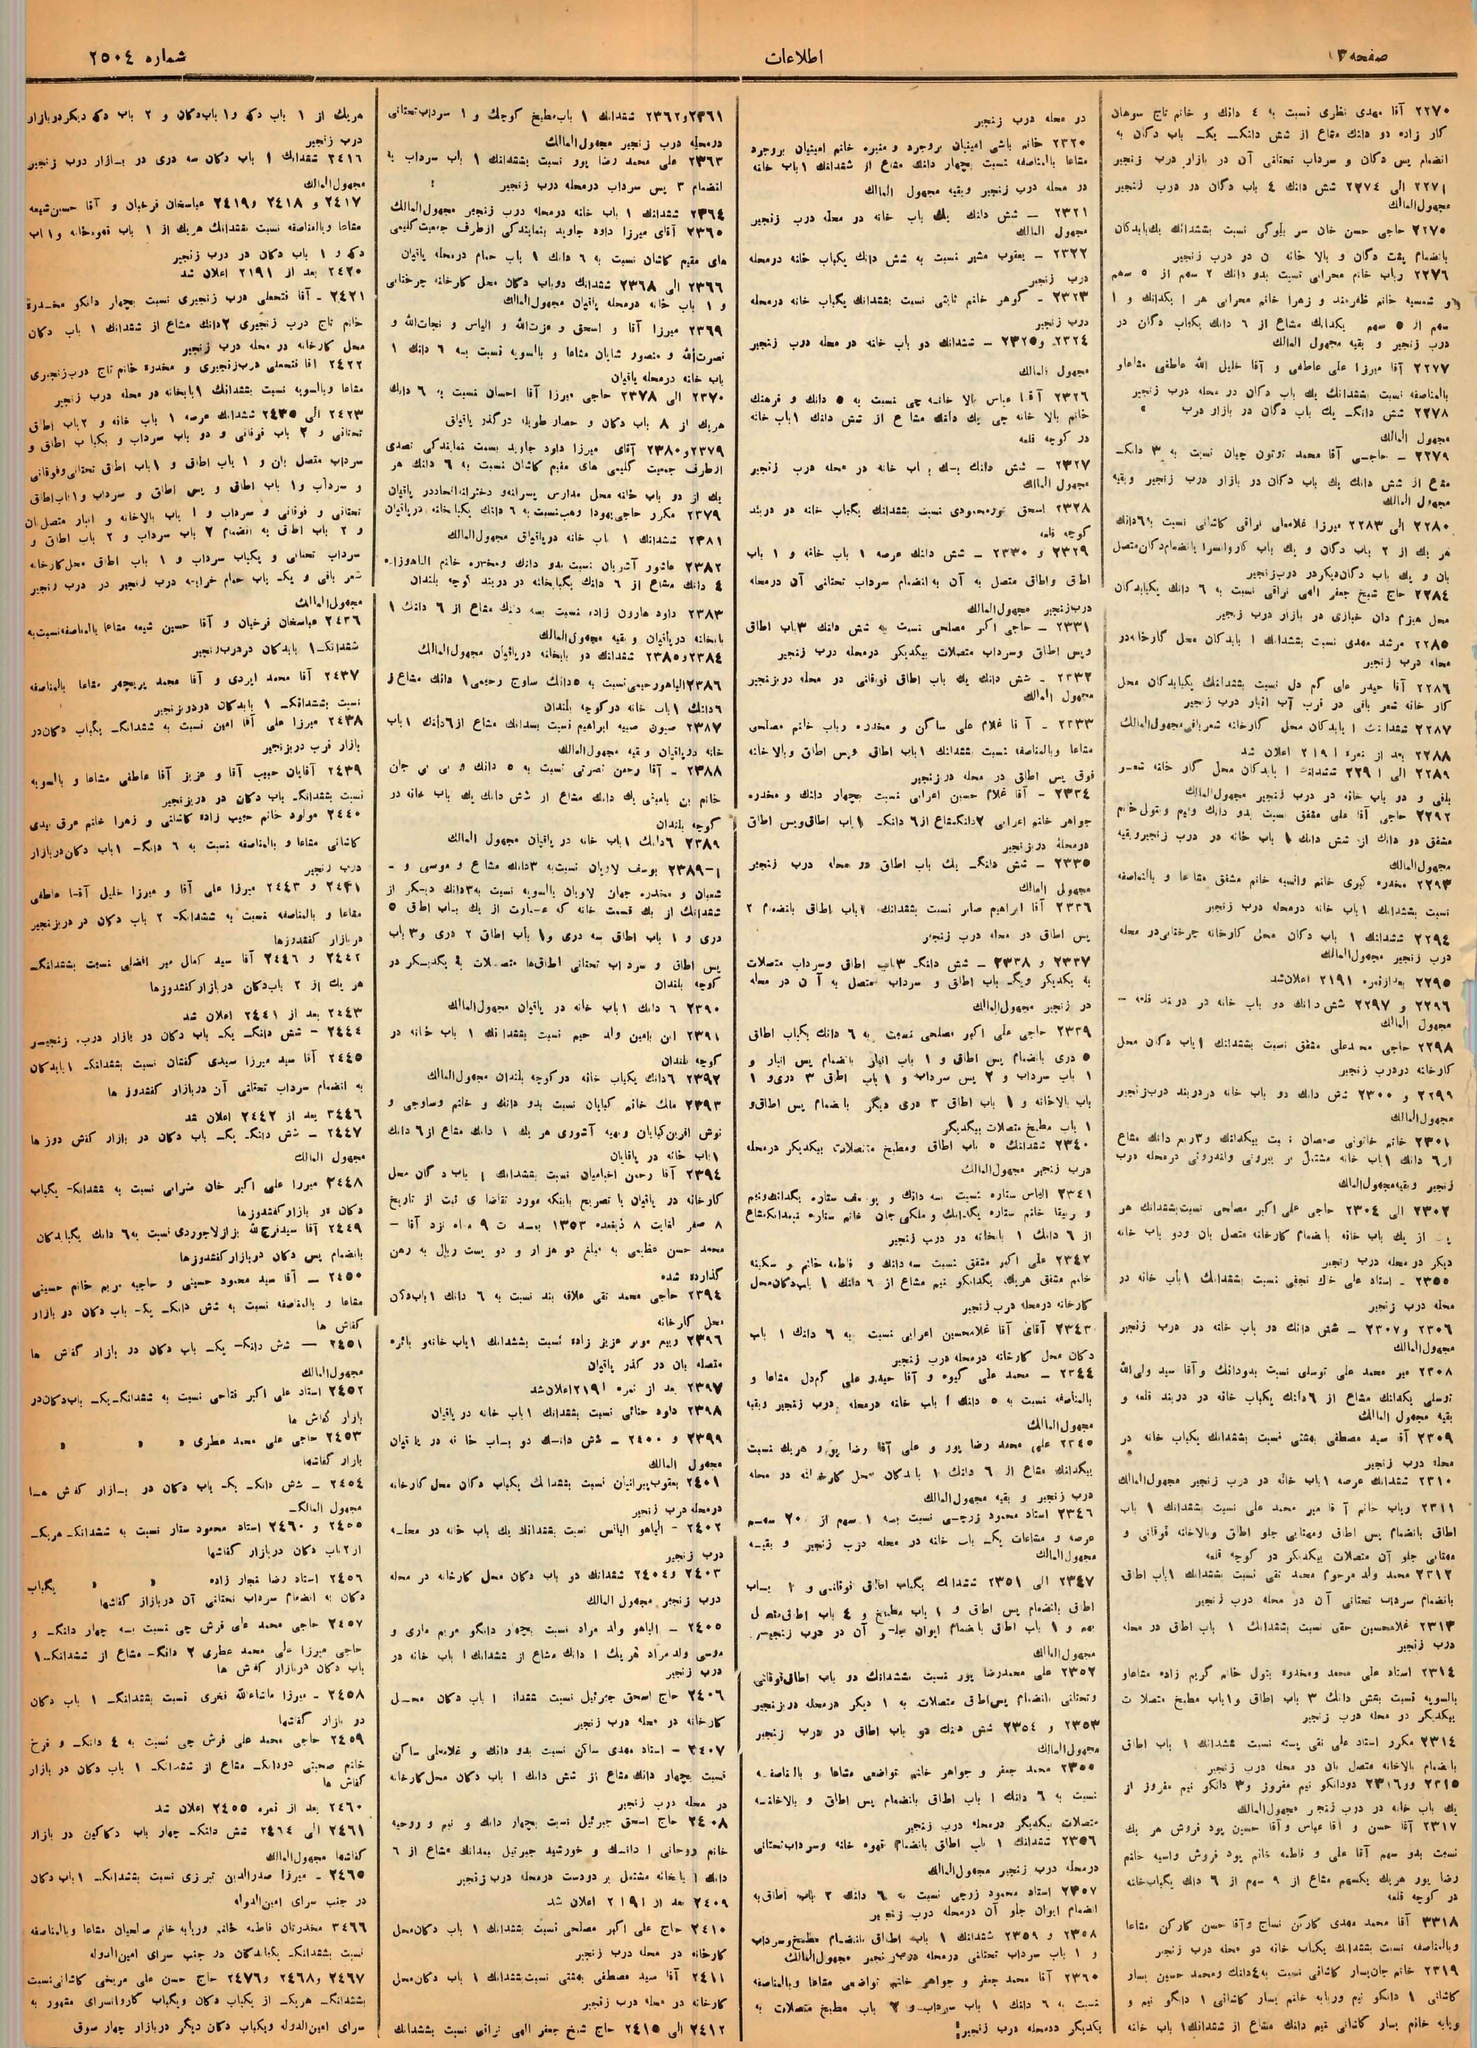 صفحه ۱۳
اطلاعات
شماره ۲۵۰۴
۲۲۷۰ آقا مهدی نظری نسبت به ۴ دانك و خانم تاج سوهان
کار زاده دو دانك مشاع از شش دانك یك باب دکان به
انضمام پس دکان و سرداب تحتانی آن در بازار درب زنجیر
۲۲۷۱ الی ۲۲۷۴ شش دانك ۴ باب دکان در درب زنجیر
مجهول‌المالك
۲۲۷۵ حاجی حسن خان سر بلوکی نسبت بششدانك یك بابدکان
بانضمام پشت دکان و بالا خانه در درب زنجیر
۲۲۷۶ رباب خانم محرابی نسبت بدو دانك ۲ سهم از ۵ سهم
و شمسیه خانم ظفرمند و زهرا خانم محرابی هر ۱ یکدانك و ۱
سهم از ۵ سهم یکدانك مشاع از ۶ دانك یکباب دکان در
درب زنجیر و بقیه مجهول المالك
۲۲۷۷ آقا میرزا علی عاطفی و آقا خلیل الله عاطفی مشاعاو
بالمناصفه نسبت بششدانك یك باب دکان در محله درب زنجیر
۲۲۷۸ شش دانك یك باب دکان در بازار درب
مجهول المالك
۲۲۷۹ - حاجی آقا محمد توتون چیان نسبت به ۳ دانك
مشاع از شش دانك یك باب دکان در بازار درب زنجیر وبقیه
مجهول المالك
۲۲۸۰ الی ۲۲۸۳ میرزا غلامعلی نراقی کاشانی نسبت به ۶ دانك
هر یك از ۲ باب دکان و یك باب کاروانسرا بانضمام دکان متصل
بان و یك باب دکان دیگر در درب زنجیر
۲۲۸۴ حاج شیخ جعفر الهی نراقی نسبت به ۶ دانك یکبابدکان
محل هیزم دان خبازی در بازار درب زنجیر
۲۲۸۵ مرشد مهدی نسبت بششدانك ۱ بابدکان محل کارخانه در
محله درب زنجیر
۲۲۸۶ آقا حیدر علی کم دل نسبت بششدانك یکبابدکان محل
کار خانه شعر بافی در قرب آب انبار درب زنجیر
۲۲۸۷ ششدانك ۱ بابدکان محل کارخانه شعربافی مجهول‌المالك
۲۲۸۸ بعد از نمره ۲۱۹۱ اعلان شد
۲۲۸۹ الی ۲۲۹۱ ششدانك ۱ بابدکان محل کار خانه شعر
بافی و دو باب خانه در درب زنجیر مجهول‌المالك
۲۲۹۲ حاجی آقا علی مشفق نسبت بدو دانك ونیم وبتول خانم
مشفق دو دانك از شش دانك ۱ باب خانه در درب زنجیر وبقیه
مجهول‌المالك
۲۲۹۳ مخدره کبری خانم وانسیه خانم مشفق مشاعا و بالمناصفه
نسبت بششدانك ۱ باب خانه درمحله درب زنجیر
۲۲۹۴ ششدانك ۱ باب دکان محل کارخانه چرختابی در محله
درب زنجیر مجهول‌المالك
۲۲۹۵ بعد از نمره ۲۱۹۱ اعلان شد
۲۲۹۶ و ۲۲۹۷ شش دانك دو باب خانه در دربند قلعه -
مجهول المالك
۲۲۹۸ حاجی محمدعلی مشفق نسبت بششدانك ۱ باب دکان محل
کارخانه در درب زنجیر
۲۲۹۹ و ۲۳۰۰ شش دانك دو باب خانه در دربند درب زنجیر
مجهول‌المالك
۲۳۰۱ خانم خاتونی نسبت بیکدانك و ۳ ربع دانك مشاع
از ۶ دانك ۱ باب خانه مشتمل بر بیرونی واندرونی درمحله درب
زنجیر وبقیه مجهول‌المالك
۲۳۰۲ الی ۲۳۰۴ حاجی علی اکبر مصلحی نسبت بششدانك هر
یك از یك باب خانه بانضمام کارخانه متصل بان ودو باب خانه
دیگر در محله درب زنجیر
۲۳۵۵ - استاد علی خان نجفی نسبت بششدانك ۱ باب خانه در
محله درب زنجیر
۲۳۰۶ و ۲۳۰۷ - شش دانك دو باب خانه در درب زنجیر
مجهول‌المالك
۲۳۰۸ میر محمد علی توسلی نسبت بدودانك وآقا سید ولی‌الله
توسلی یکدانك مشاع از ۶ دانك یکباب خانه در دربند قلعه و
بقیه مجهول المالك
۲۳۰۹ آقا سید مصطفی بهشتی نسبت بششدانك یکباب خانه در
محله درب زنجیر
۲۳۱۰ ششدانك عرصه ۱ باب خانه در درب زنجیر مجهول‌المالك
۲۳۱۱ رباب خانم آقا میر محمد علی نسبت بششدانك ۱ باب
اطاق بانضمام پس اطاق ومهتابی جلو اطاق وبالاخانه فوقانی و
مهتابی جلو آن متصلات بیکدیگر در کوچه قلعه
۲۳۱۲ محمد ولد مرحوم محمد تقی نسبت بششدانك ۱ باب اطاق
بانضمام سرداب تحتانی آن در محله درب زنجیر
۲۳۱۳ غلامحسین حقی نسبت بششدانك ۱ باب اطاق در محله
درب زنجیر
۲۳۱۴ استاد علی محمد ومخدره بتول خانم کریم زاده مشاعاو
بالسویه نسبت بشش دانك ۳ باب اطاق و ۱ باب مطبخ متصلات
بیکدیگر در محله درب زنجیر
۲۳۱۴ مکرر استاد علی نقی پسته نسبت بششدانك ۱ باب اطاق
بانضمام بالاخانه متصل بان در محله درب زنجیر
۲۳۱۵ و ۲۳۱۶ دودانکو نیم مفروز و ۳ دانکو نیم مفروز از
یك باب خانه در درب زنجیر مجهول‌المالك
۲۳۱۷ آقا حسن و آقا عباس وآقا حسین پود فروش هر یك
نسبت بدو سهم آقا علی و فاطمه خانم پود فروش واسیه خانم
رضا پور هریك یکسهم مشاع از ۹ سهم از ۶ دانك یکبابخانه
در کوچه قلعه
۳۳۱۸ آقا محمد مهدی کارکن نساج وآقا حسن کارکن مشاعا
وبالمناصفه نسبت بششدانك یکباب خانه دو محله درب زنجیر
۲۳۱۹ خانم جان‌یسار کاشانی نسبت به ۴ دانك ومحمد حسین یسار
کاشانی ۱ دانکو نیم وربابه خانم یسار کاشانی ۱ دانکو نیم و
وبابه خانم یسار کاشانی نیم دانك مشاع از ششدانك ۱ باب خانه
در محله درب زنجیر
۲۳۲۰ خانم باشی امینیان بروجرد و منیره خانم امینیان بروجرد
مشاعا بالمناصفه نسبت بچهار دانك مشاع از ششدانك ۱ باب خانه
در محله درب زنجیر وبقیه مجهول المالك
۲۳۲۱ - شش دانك یك باب خانه در محله درب زنجیر
مجهول المالك
۲۳۲۲ - یعقوب مشیر نسبت به شش دانك یکباب خانه درمحله
درب زنجیر
۲۳۲۳ - گوهر خانم ثابتی نسبت بششدانك یکباب خانه درمحله
درب زنجیر
۲۳۲۴ و ۲۳۲۵ - ششدانك دو باب خانه در محله درب زنجیر
مجهول المالك
۲۳۲۶ آقا عباس بالا خانه چی نسبت به ۵ دانك و فرهنك
خانم بالا خانه چی یك دانك مشاع از شش دانك ۱ باب خانه
در کوچه قلعه
۲۳۲۷ - شش دانك یك باب خانه در محله درب زنجیر
مجهول المالك
۲۳۲۸ اسحق نورمحمودی نسبت بششدانك یکباب خانه در دربند
کوچه قلعه
۲۳۲۹ و ۲۳۳۰ - شش دانك عرصه ۱ باب خانه و ۱ باب
اطاق واطاق متصل به آن به انضمام سرداب تحتانی آن درمحله
درب زنجیر مجهول‌المالك
۲۳۳۱ - حاجی اکبر مصلحی نسبت به شش دانك ۳ باب اطاق
وپس اطاق وسرداب متصلات بیکدیگر درمحله درب زنجیر
۲۳۳۲ - شش دانك یك باب اطاق فوقانی در محله دربزنجیر
مجهول المالك
۲۳۳۳ - آقا غلام علی ساکن و مخدره رباب خانم مصلحی
مشاعا وبالمناصفه نسبت بششدانك ۱ باب اطاق وپس اطاق وبالاخانه
فوق پس اطاق در محله دربزنجیر
۲۳۳۴ - آقا غلام حسین اعرابی نسبت بچهار دانك و مخدره
جواهر خانم اعرابی ۲ دانك مشاع از ۶ دانك ۱ باب اطاق وپس اطاق
درمحله دربزنجیر
۲۳۳۵ - شش دانك یك باب اطاق در محله درب زنجیر
مجهول المالك
۲۳۳۶ آقا ابراهیم صابر نسبت بششدانك ۱ باب اطاق بانضمام ۲
پس اطاق در محله درب زنجیر
۲۳۳۷ و ۲۳۳۸ - شش دانك ۳ باب اطاق وسرداب متصلات
به یکدیگر ویك باب اطاق و سرداب متصل به آن در محله
در زنجیر مجهول‌المالك
۲۳۳۹ حاجی علی اکبر مصلحی نسبت به ۶ دانك یکباب اطاق
۵ دری بانضمام پس اطاق و ۱ باب انبار بانضمام پس انبار و
۱ باب سرداب و ۲ پس سرداب و ۱ باب اطاق ۳ دری و ۱
باب بالاخانه و ۱ باب اطاق ۳ دری دیگر بانضمام پس اطاق و
۱ باب مطبخ متصلات بیکدیگر
۲۳۴۰ ششدانك ۵ باب اطاق ومطبخ متصلات بیکدیگر درمحله
درب زنجیر مجهول‌المالك
۲۳۴۱ الیاس ستاره نسبت سه دانك و یوسف ستاره یکدانك ونیم
و ربیقا خانم ستاره یکدانك و ملکی جان خانم ستاره نیمدانك مشاع
از ۶ دانك ۱ بابخانه در درب زنجیر
۲۳۴۲ علی اکبر مشفق نسبت سه دانك و فاطمه خانم و سکینه
خانم مشفق هریك یکدانکو نیم مشاع از ۶ دانك ۱ باب دکان محل
کارخانه درمحله درب زنجیر
۲۳۴۳ آقای آقا غلامحسین اعرابی نسبت به ۶ دانك ۱ باب
دکان محل کارخانه درمحله درب زنجیر
۲۳۴۴ - محمد علی گیوه و آقا حیدر علی کم‌دل مشاعا و
بالمناصفه نسبت به ۵ دانك ۱ باب خانه درمحله درب زنجیر وبقیه
مجهول المالك
۲۳۴۵ علی محمد رضا پور و علی آقا رضا پور هریك نسبت
بیکدانك مشاع از ۶ دانك ۱ بابدکان محل کارخانه در محله
درب زنجیر و بقیه مجهول‌المالك
۲۳۴۶ استاد محمود زرجی نسبت به ۱ سهم از ۲۰ سهم
عرصه و مشاعات یك باب خانه در محله درب زنجیر و بقیه
مجهول‌المالك
۲۳۴۷ الی ۲۳۵۱ ششدانك یکباب اطاق فوقانی و ۲ باب
اطاق بانضمام پس اطاق و ۱ باب مطبخ و ۴ باب اطاق متصل
بهم و ۱ باب اطاق بانضمام ایوان جلو آن در درب زنجیر
مجهول‌المالك
۲۳۵۲ علی محمدرضا پور نسبت بششدانك دو باب اطاق فوقانی
وتحتانی بانضمام پس اطاق متصلات به ۱ دیگر درمحله دربزنجیر
۲۳۵۳ و ۲۳۵۴ شش دانك دو باب اطاق در درب زنجیر
مجهول‌المالك
۲۳۵۵ محمد جعفر و جواهر خانم تواضعی مشاعا و بالمناصفه
نسبت به ۶ دانك ۱ باب اطاق بانضمام پس اطاق و بالاخانه
متصلات بیکدیگر درمحله درب زنجیر
۲۳۵۶ ششدانك ۱ باب اطاق بانضمام قهوه خانه وسرداب تحتانی
درمحله درب زنجیر مجهول المالك
۲۳۵۷ استاد محمود زرجی نسبت به ۶ دانك ۲ باب اطاق به
انضمام ایوان جلو آن درمحله درب زنجیر
۲۳۵۸ و ۲۳۵۹ ششدانك ۱ باب اطاق بانضمام مطبخ وسرداب
و ۱ باب سرداب تحتانی درمحله درب زنجیر مجهول‌المالك
۲۳۶۰ آقا محمد جعفر و جواهر خانم تواضعی مشاعا وبالمناصفه
نسبت به ۶ دانك ۱ باب سرداب و ۲ باب مطبخ متصلات به
یکدیگر درمحله درب زنجیر
۲۳۶۱ و ۲۳۶۲ ششدانك ۱ باب مطبخ کوچك و ۱ سرداب تحتانی
درمحله درب زنجیر مجهول‌المالك
۲۳۶۳ علی محمد رضا پور نسبت بششدانك ۱ باب سرداب به
انضمام ۳ پس سرداب درمحله درب زنجیر
۲۳۶۴ ششدانك ۱ باب خانه درمحله درب زنجیر مجهول‌المالك
۲۳۶۵ آقای میرزا داود جاوید بنمایندگی ازطرف جمعیت کلیمی
های مقیم کاشان نسبت به ۶ دانك ۱ باب حمام درمحله پاقپان
۲۳۶۶ الی ۲۳۶۸ ششدانك دوباب دکان محل کارخانه چرختابی
و ۱ باب خانه درمحله پاقپان مجهول‌المالك
۲۳۶۹ میرزا آقا و اسحق و عزت‌الله و الیاس و نجات‌الله و
نصرت‌الله و منصور شایان مشاعا و بالسویه نسبت به ۶ دانك ۱
باب خانه درمحله پاقپان
۲۳۷۰ الی ۲۳۷۸ حاجی میرزا آقا احسان نسبت به ۶ دانك
هریك از ۸ باب دکان و حصار طویله در گذر پاقپان
۲۳۷۹ و ۲۳۸۰ آقای میرزا داود جاوید بسمت نمایندگی تصدی
ازطرف جمعیت کلیمی های مقیم کاشان نسبت به ۶ دانك هر
یك از دو باب خانه محل مدارس پسرانه و دخترانه اتحاد در پاقپان
۲۳۷۹ مکرر حاجی یهودا وهب نسبت به ۶ دانك یکبابخانه در پاقپان
۲۳۸۱ ششدانك ۱ باب خانه در پاقپان مجهول‌المالك
۲۳۸۲ عاشور آشریان نسبت بدو دانك ومخدره خانم الیاهوزاده
۴ دانك مشاع از ۶ دانك یکبابخانه در دربند کوچه بلندان
۲۳۸۳ داود هارون زاده نسبت بسه دانك مشاع از ۶ دانك ۱
بابخانه درپاقپان و بقیه مجهول‌المالك
۲۳۸۴ و ۲۳۸۵ ششدانك دو بابخانه درپاقپان مجهول‌المالك
۲۳۸۶ الیاهو رحیمی نسبت به ۵ دانك ساوج رحیمی ۱ دانك مشاع از
۶ دانك ۱ باب خانه درکوچه بلندان
۲۳۸۷ صیون صبیه ابراهیم نسبت بسدانك مشاع از ۶ دانك ۱ باب
خانه در پاقپان و بقیه مجهول‌المالك
۲۳۸۸ - آقا رحمن نصرتی نسبت به ۵ دانك و بی بی جان
خانم بن یامینی یك دانك مشاع از شش دانك یك باب خانه در
کوچه بلندان
۲۳۸۹ ۶ دانك ۱ باب خانه در پاقپان مجهول المالك
۱-۲۳۸۹ یوسف لاویان نسبت به ۳ دانك مشاع و موسی و -
شعبان و مخدره جهان لاویان بالسویه نسبت به ۳ دانك دیگر از
ششدانك از یك قسمت خانه که عبارت از یك باب اطاق ۵
دری و ۱ باب اطاق سه دری و ۱ باب اطاق ۲ دری و ۳ باب
پس اطاق و سرداب تحتانی اطاق‌ها متصلات به یکدیگر در
کوچه بلندان
۲۳۹۰ ۶ دانك ۱ باب خانه در پاقپان مجهول‌المالك
۲۳۹۱ ابن یامین ولد حیم نسبت بششدانك ۱ باب خانه در
کوچه بلندان
۲۳۹۲ ۶ دانك یکباب خانه درکوچه بلندان مجهول‌المالك
۲۳۹۳ ملك خانم کیایان نسبت بدو دانك و خانم وساوجی و
نوش آفرین کیایان وبهیه آشوری هر یك ۱ دانك مشاع از ۶ دانك
۱ باب خانه در پاقپان
۲۳۹۴ آقا رحمن اخبامیان نسبت بششدانك ۱ باب دکان محل
کارخانه در پاقپان با تصریح باینکه مورد تقاضای ثبت از تاریخ
۸ صفر لغایت ۸ ذیقعده ۱۳۵۳ بمدت ۹ ماه نزد آقا -
محمد حسن عظیمی به مبلغ دو هزار و دویست ریال به رهن
گذارده شده
۲۳۹۴ حاجی محمد تقی علاقه بند نسبت به ۶ دانك ۱ باب دکان
محل کارخانه
۲۳۹۶ ربیع موبر عزیز زاده نسبت بششدانك ۱ باب خانه و بائره
متصله بان در گذر پاقپان
۲۳۹۷ بعد از نمره ۲۱۹۱ اعلان شد
۲۳۹۸ داود حنائی نسبت بششدانك ۱ باب خانه در پاقپان
۲۳۹۹ و ۲۴۰۰ - شش دانك دو باب خانه در پاقپان
مجهول المالك
۲۴۰۱ یعقوب پیرانیان نسبت بششدانك یکباب دکان محل کارخانه
درمحله درب زنجیر
۲۴۰۲ - الیاهو الیاس نسبت بششدانك یك باب خانه در محله
درب زنجیر
۲۴۰۳ و ۲۴۰۴ ششدانك دو باب دکان محل کارخانه در محله
درب زنجیر مجهول المالك
۲۴۰۵ - الیاهو ولد مراد نسبت بچهار دانکو مریم ماری و
موسی ولد مراد هریك ۱ دانك مشاع از ششدانك ۱ باب خانه در
درب زنجیر
۲۴۰۶ حاج اسحق جبرئیل نسبت بششدانك ۱ باب دکان محل
کارخانه در محله درب زنجیر
۲۴۰۷ - استاد مهدی ساکن نسبت بدو دانك و غلامعلی ساکن
نسبت بچهار دانك مشاع از شش دانك ۱ باب دکان محل کارخانه
در محله درب زنجیر
۲۴۰۸ حاج اسحق جبرئیل نسبت بچهار دانك و نیم و روحیه
خانم روحانی ۱ دانك و خورشید جبرئیل نیمدانك مشاع از ۶
دانك ۱ بابخانه مشتمل بر دودست درمحله درب زنجیر
۲۴۰۹ بعد از ۲۱۹۱ اعلان شد
۲۴۱۰ حاج علی اکبر مصلحی نسبت بششدانك ۱ باب دکان محل
کارخانه در محله درب زنجیر
۲۴۱۱ آقا سید مصطفی بهشتی نسبت بششدانك ۱ باب دکان محل
کارخانه در محله درب زنجیر
۲۴۱۲ الی ۲۴۱۵ حاج شیخ جعفر الهی نراقی نسبت بششدانك
هریك از ۱ باب دکه و ۱ باب دکان و ۲ باب دکه دیگر در بازار
درب زنجیر
۲۴۱۶ ششدانك ۱ باب دکان سه دری در بازار درب زنجیر
مجهول‌المالك
۲۴۱۷ و ۲۴۱۸ و ۲۴۱۹ عباسخان فرخیان و آقا حسین شیعه
مشاعا وبالمناصفه نسبت بششدانك هریك از ۱ باب قهوه‌خانه و ۱ باب
دکه و ۱ باب دکان در درب زنجیر
۲۴۲۰ بعد از ۲۱۹۱ اعلان شد
۲۴۲۱ - آقا فتحعلی درب زنجیری نسبت بچهار دانکو مخدره
خانم تاج درب زنجیری ۲ دانك مشاع از ششدانك ۱ باب دکان
محل کارخانه در محله درب زنجیر
۲۴۲۲ آقا فتحعلی درب‌زنجیری و مخدره خانم تاج درب‌زنجیری
مشاعا وبالسویه نسبت بششدانك ۱ بابخانه در محله درب زنجیر
۲۴۲۳ الی ۲۴۳۵ ششدانك عرصه ۱ باب خانه و ۲ باب اطاق
تحتانی و ۲ باب فوقانی و دو باب سرداب و یکباب اطاق و
سرداب متصل بان و ۱ باب اطاق و ۱ باب اطاق تحتانی وفوقانی
و سرداب و ۱ باب اطاق و پس اطاق و سرداب و ۱ باب اطاق
تحتانی و فوقانی و سرداب و ۱ باب بالاخانه و انبار متصل بان
و ۲ باب اطاق به انضمام ۲ باب سرداب و ۲ باب اطاق و
سرداب تحتانی و یکباب سرداب و ۱ باب اطاق محل کارخانه
شعر بافی و یك باب حمام خرابه در محله درب زنجیر در درب زنجیر
مجهول‌المالك
۲۴۳۶ عباسخان فرخیان و آقا حسین شیعه مشاعا بالمناصفه نسبت به
ششدانك ۱ بابدکان دردرب زنجیر
۲۴۳۷ آقا محمد ایزدی و آقا محمد پریچهر مشاعا بالمناصفه
نسبت بششدانك ۱ بابدکان دردربزنجیر
۲۴۳۸ میرزا علی آقا امین نسبت به ششدانك یکباب دکان در
بازار قرب دربزنجیر
۲۴۳۹ آقایان حبیب آقا و عزیز آقا عاطفی مشاعا و بالسویه
نسبت بششدانك باب دکان در دربزنجیر
۲۴۴۰ مولود خانم حبیب زاده کاشانی و زهرا خانم عرق بیدی
کاشانی مشاعا و بالمناصفه نسبت به ۶ دانك ۱ باب دکان دربازار
درب زنجیر
۲۴۴۱ و ۲۴۴۳ میرزا علی آقا و میرزا خلیل آقا عاطفی
مشاعا و بالمناصفه نسبت به ششدانك ۲ باب دکان در دربزنجیر
در بازار کفشدوزها
۲۴۴۲ و ۲۴۴۶ آقا سید کمال میر افضلی نسبت بششدانك
هر یك از ۲ باب دکان در بازار کفشدوزها
۲۴۴۳ بعد از ۲۴۴۱ اعلان شد
۲۴۴۴ - شش دانك یك باب دکان در بازار درب زنجیر
۲۴۴۵ آقا سید میرزا سیدی کفشان نسبت بششدانك ۱ بابدکان
به انضمام سرداب تحتانی آن دربازار کفشدوز ها
۳۴۴۶ بعد از ۲۴۴۲ اعلان شد
۲۴۴۷ - شش دانك یك باب دکان در بازار کفش دوز ها
مجهول المالك
۲۴۴۸ میرزا علی اکبر خان ضرابی نسبت به ششدانك یکباب
دکان در بازار کفشدوزها
۲۴۴۹ آقا سیدفرج‌الله بزازلاجوردی نسبت به ۶ دانك یکبابدکان
بانضمام پس دکان دربازار کفشدوزها
۲۴۵۰ - آقا سید محمود حسینی و حاجیه مریم خانم حسینی
مشاعا و بالمناصفه نسبت به شش دانك یك باب دکان در بازار
کفاش ها
۲۴۵۱ - شش دانك یك باب دکان در بازار کفاش ها
مجهول‌المالك
۲۴۵۲ استاد علی اکبر فتاحی نسبت به ششدانك یك باب دکان در
بازار کفاش ها
۲۴۵۳ حاجی علی محمد عطری » » »
بازار کفاشها
۲۴۵۴ - شش دانك یك باب دکان در بازار کفش ها
مجهول المالك
۲۴۵۵ و ۲۴۶۰ استاد محمود ستار نسبت به ششدانك هریك
از ۲ باب دکان دربازار کفاشها
۲۴۵۶ استاد رضا نجار زاده » » یکباب
دکان به انضمام سرداب تحتانی آن دربازار کفاشها
۲۴۵۷ حاجی محمد علی فرش چی نسبت به چهار دانك و
حاجی میرزا علی محمد عطری ۲ دانك مشاع از ششدانك ۱
باب دکان دربازار کفش ها
۲۴۵۸ - میرزا ماشاءالله فخری نسبت بششدانك ۱ باب دکان
دو بازار کفاشها
۲۴۵۹ حاجی محمد علی فرش چی نسبت به ۴ دانك و فرخ
خانم صحبتی دودانك مشاع از ششدانك ۱ باب دکان در بازار
کفاش ها
۲۴۶۰ بعد از نمره ۲۴۵۵ اعلان شد
۲۴۶۱ الی ۲۴۶۴ شش دانك چهار باب دکاکین در بازار
کفاشها مجهول‌المالك
۲۴۶۵ - میرزا صدرالدین تبریزی نسبت بششدانك ۱ باب دکان
در جنب سرای امین‌الدوله
۳۴۶۶ مخدرتان فاطمه خانم وربابه خانم صالحیان مشاعا وبالمناصفه
نسبت بششدانك یکبابدکان در جنب سرای امین‌الدوله
۲۴۶۷ و ۲۴۶۸ و ۲۴۷۶ حاج حسن علی مریخی کاشانی نسبت
بششدانك هریك از یکباب دکان ویکباب کاروانسرای مشهور به
سرای امین‌الدوله ویکباب دکان دیگر دربازار چهار سوق